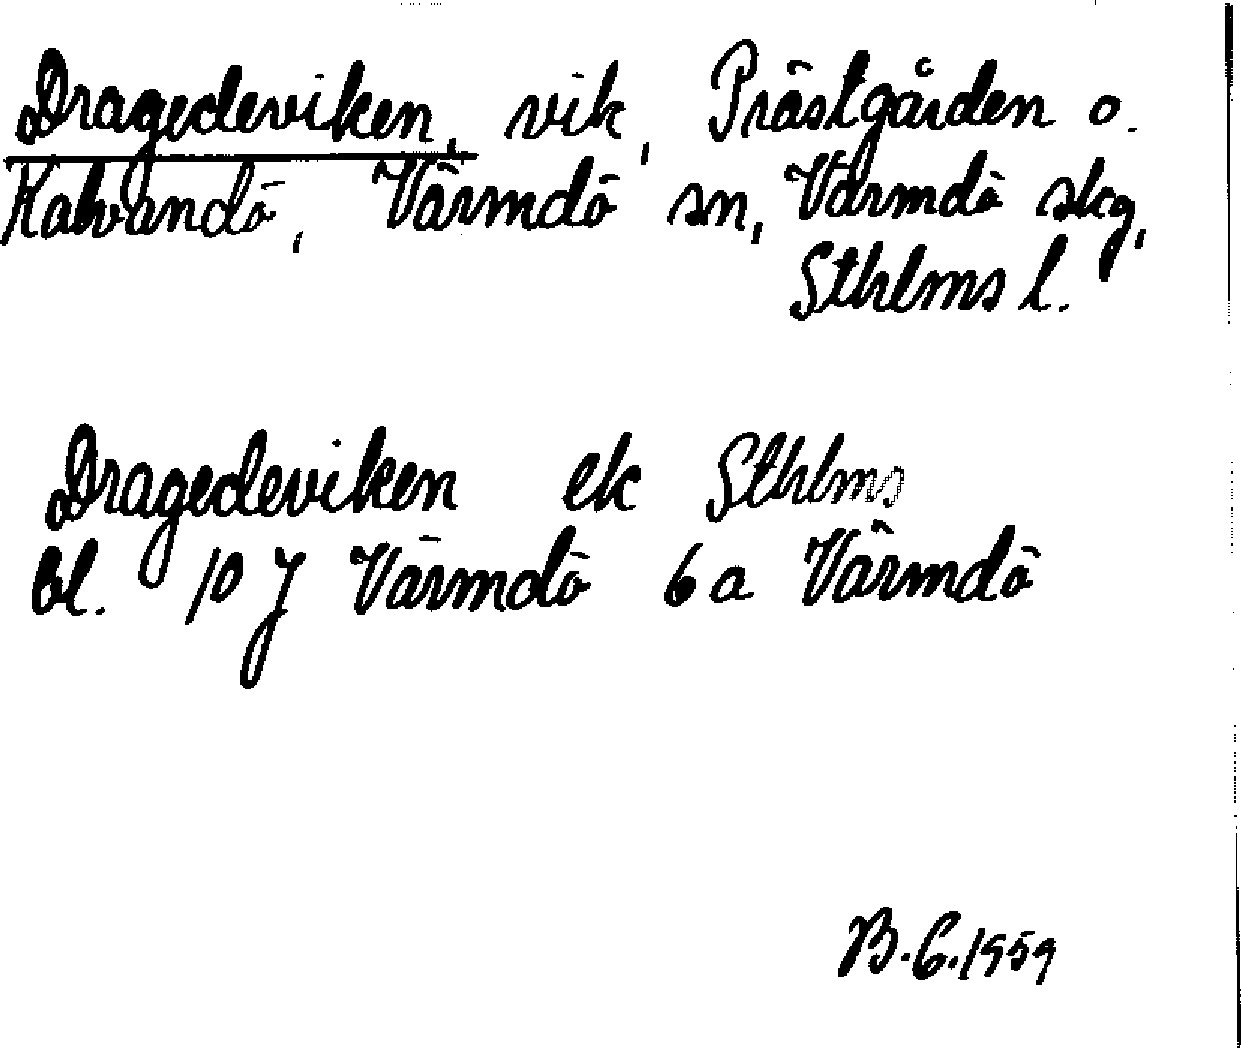 Dragedeviken, vik, Prästgården o.
Kalvandö, Värmdö sn, Värmdö skg,
Sthlms l.
Dragedeviken ek Sthlms
bl. 10 J Värmdö 6 a Värmdö
B.G.1959